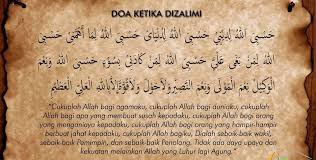 DOA KETIKA DIZALIMI
حَسْبِيَ اللهُ لِدِيْنِيْ حَسْبِيَ اللهُ لِدُنْيَايَ حَسْبِيَ اللهُ لِمَا أَهَمَّنِيْ حَسْبِيَ
اللهُ لِمَنْ بَغَى عَلَيَّ حَسْبِيَ اللهُ لِمَنْ كَادَنِيْ بِسُوْءٍ حَسْبِيَ اللهُ وَنِعْمَ
الْوَكِيْلُ نِعْمَ الْمَوْلَى وَنِعْمَ النَّصِيْرُ وَلَاحَوْلَ وَلَاقُوَّةَ إِلَّا بِاللهِ الْعَلِيِّ الْعَظِيْمِ
"Cukuplah Allah bagi agamaku, cukuplah Allah bagi duniaku, cukuplah
Allah bagi apa yang membuat susah kepadaku, cukuplah Allah bagi orang
yang menganiaya kepadaku, cukuplah Allah bagi orang yang hampir-hampir
berbuat jahat kepadaku, cukuplah Allah bagiku, Dialah sebaik-baik wakil,
sebaik-baik Pemimpin, dan sebaik-baik Penolong. Tidak ada daya upaya dan
kekuatan melainkan Allah yang Luhur lagi Agung."